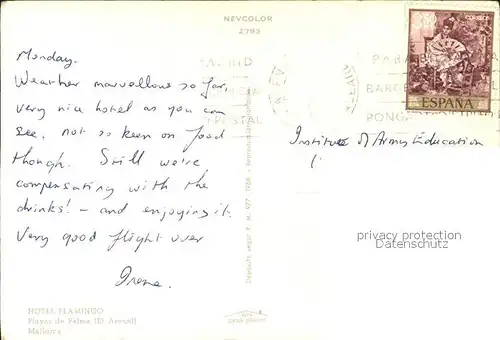 NEVCOLOR
2793
Monday.
Weather marvellous so far,
very nice hotel as you can
see, not so keen on food
though. Still we're
compensating with the
drinks! - and enjoying it.
Very good flight over
Irene.
HOTEL FLAMINGO
Playas de Palma (El Arenal)
Mallorca
CORREOS
ESPAÑA
Institute of Army Education
privacy protection
Datenschutz